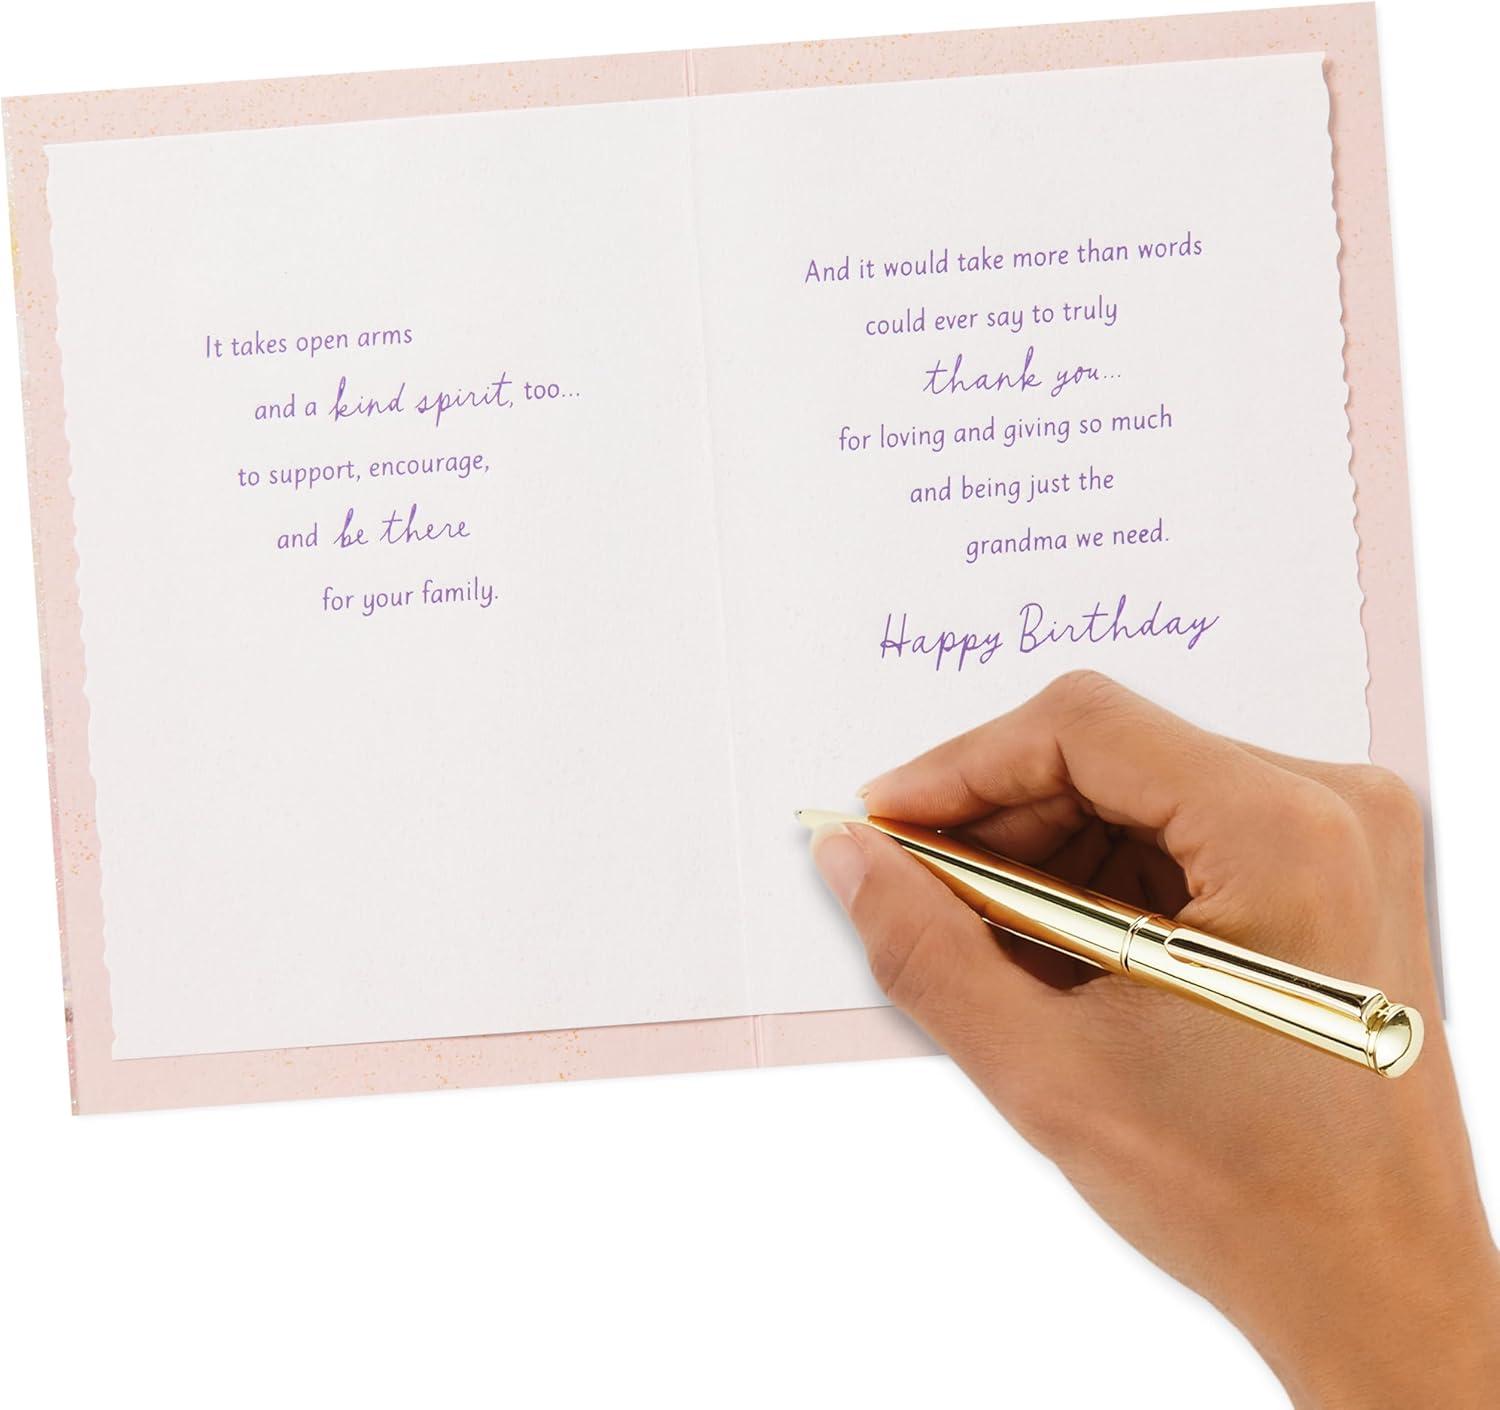 It takes open arms
and a kind spirit, too...
to support, encourage,
and be there
for your family.
And it would take more than words
could ever say to truly
thank you...
for loving and giving so much
and being just the
grandma we need.
Happy Birthday